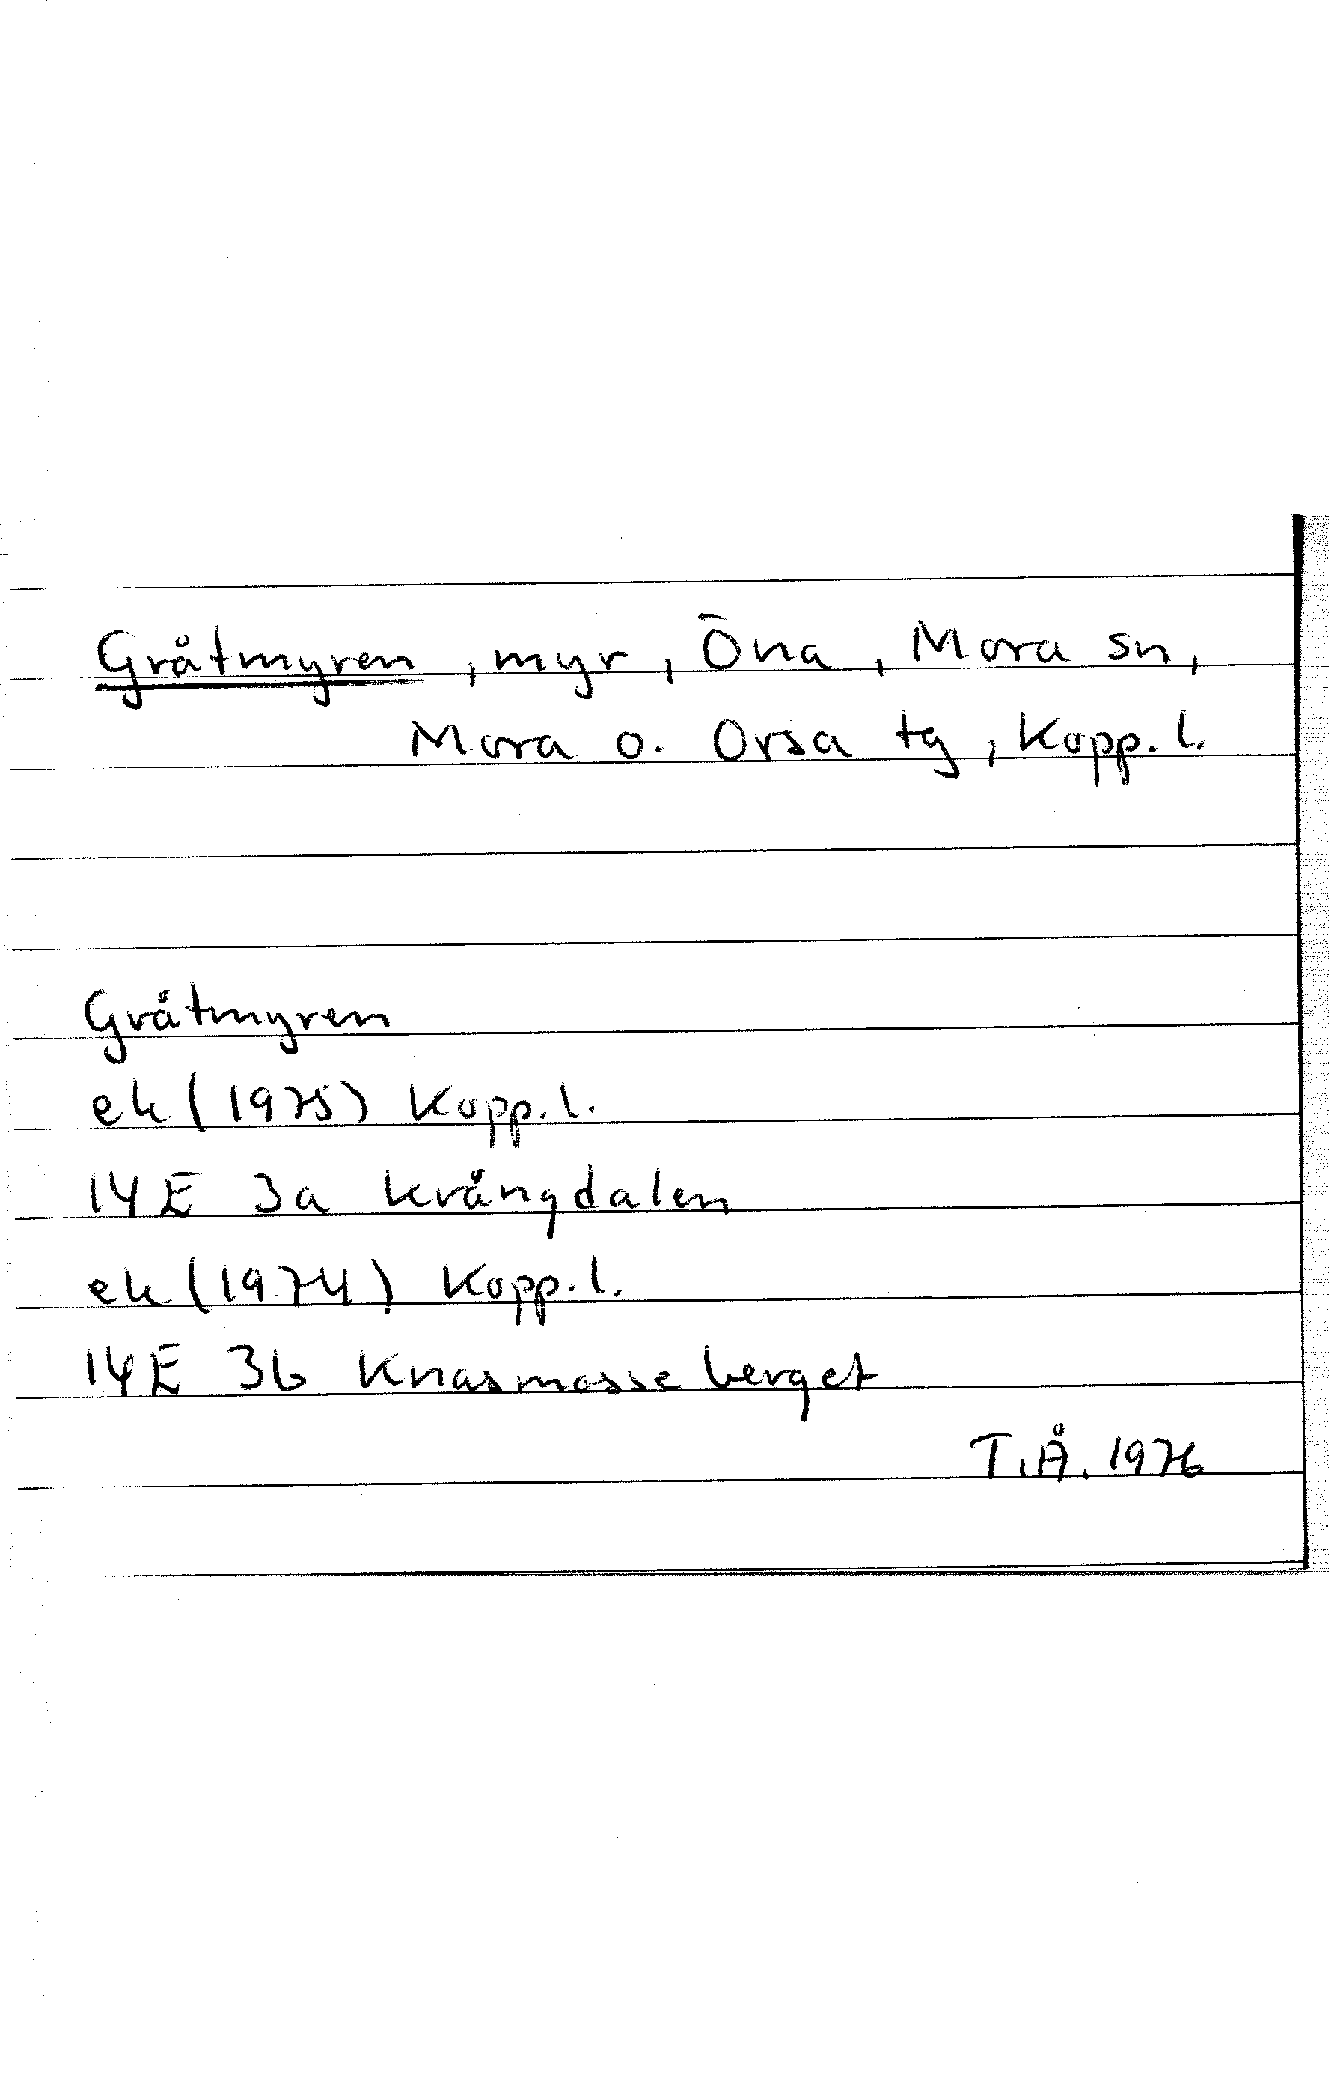 Gråtmyren, myr, Öna, Mora sn,
Mora o. Orsa tg, Kopp. l.
Gråtmyren
ek (1975) Kopp. l.
14E 3a Krångdalen
ek (1974) Kopp. l.
14E 3b Knasmosseberget
T.Å. 1976